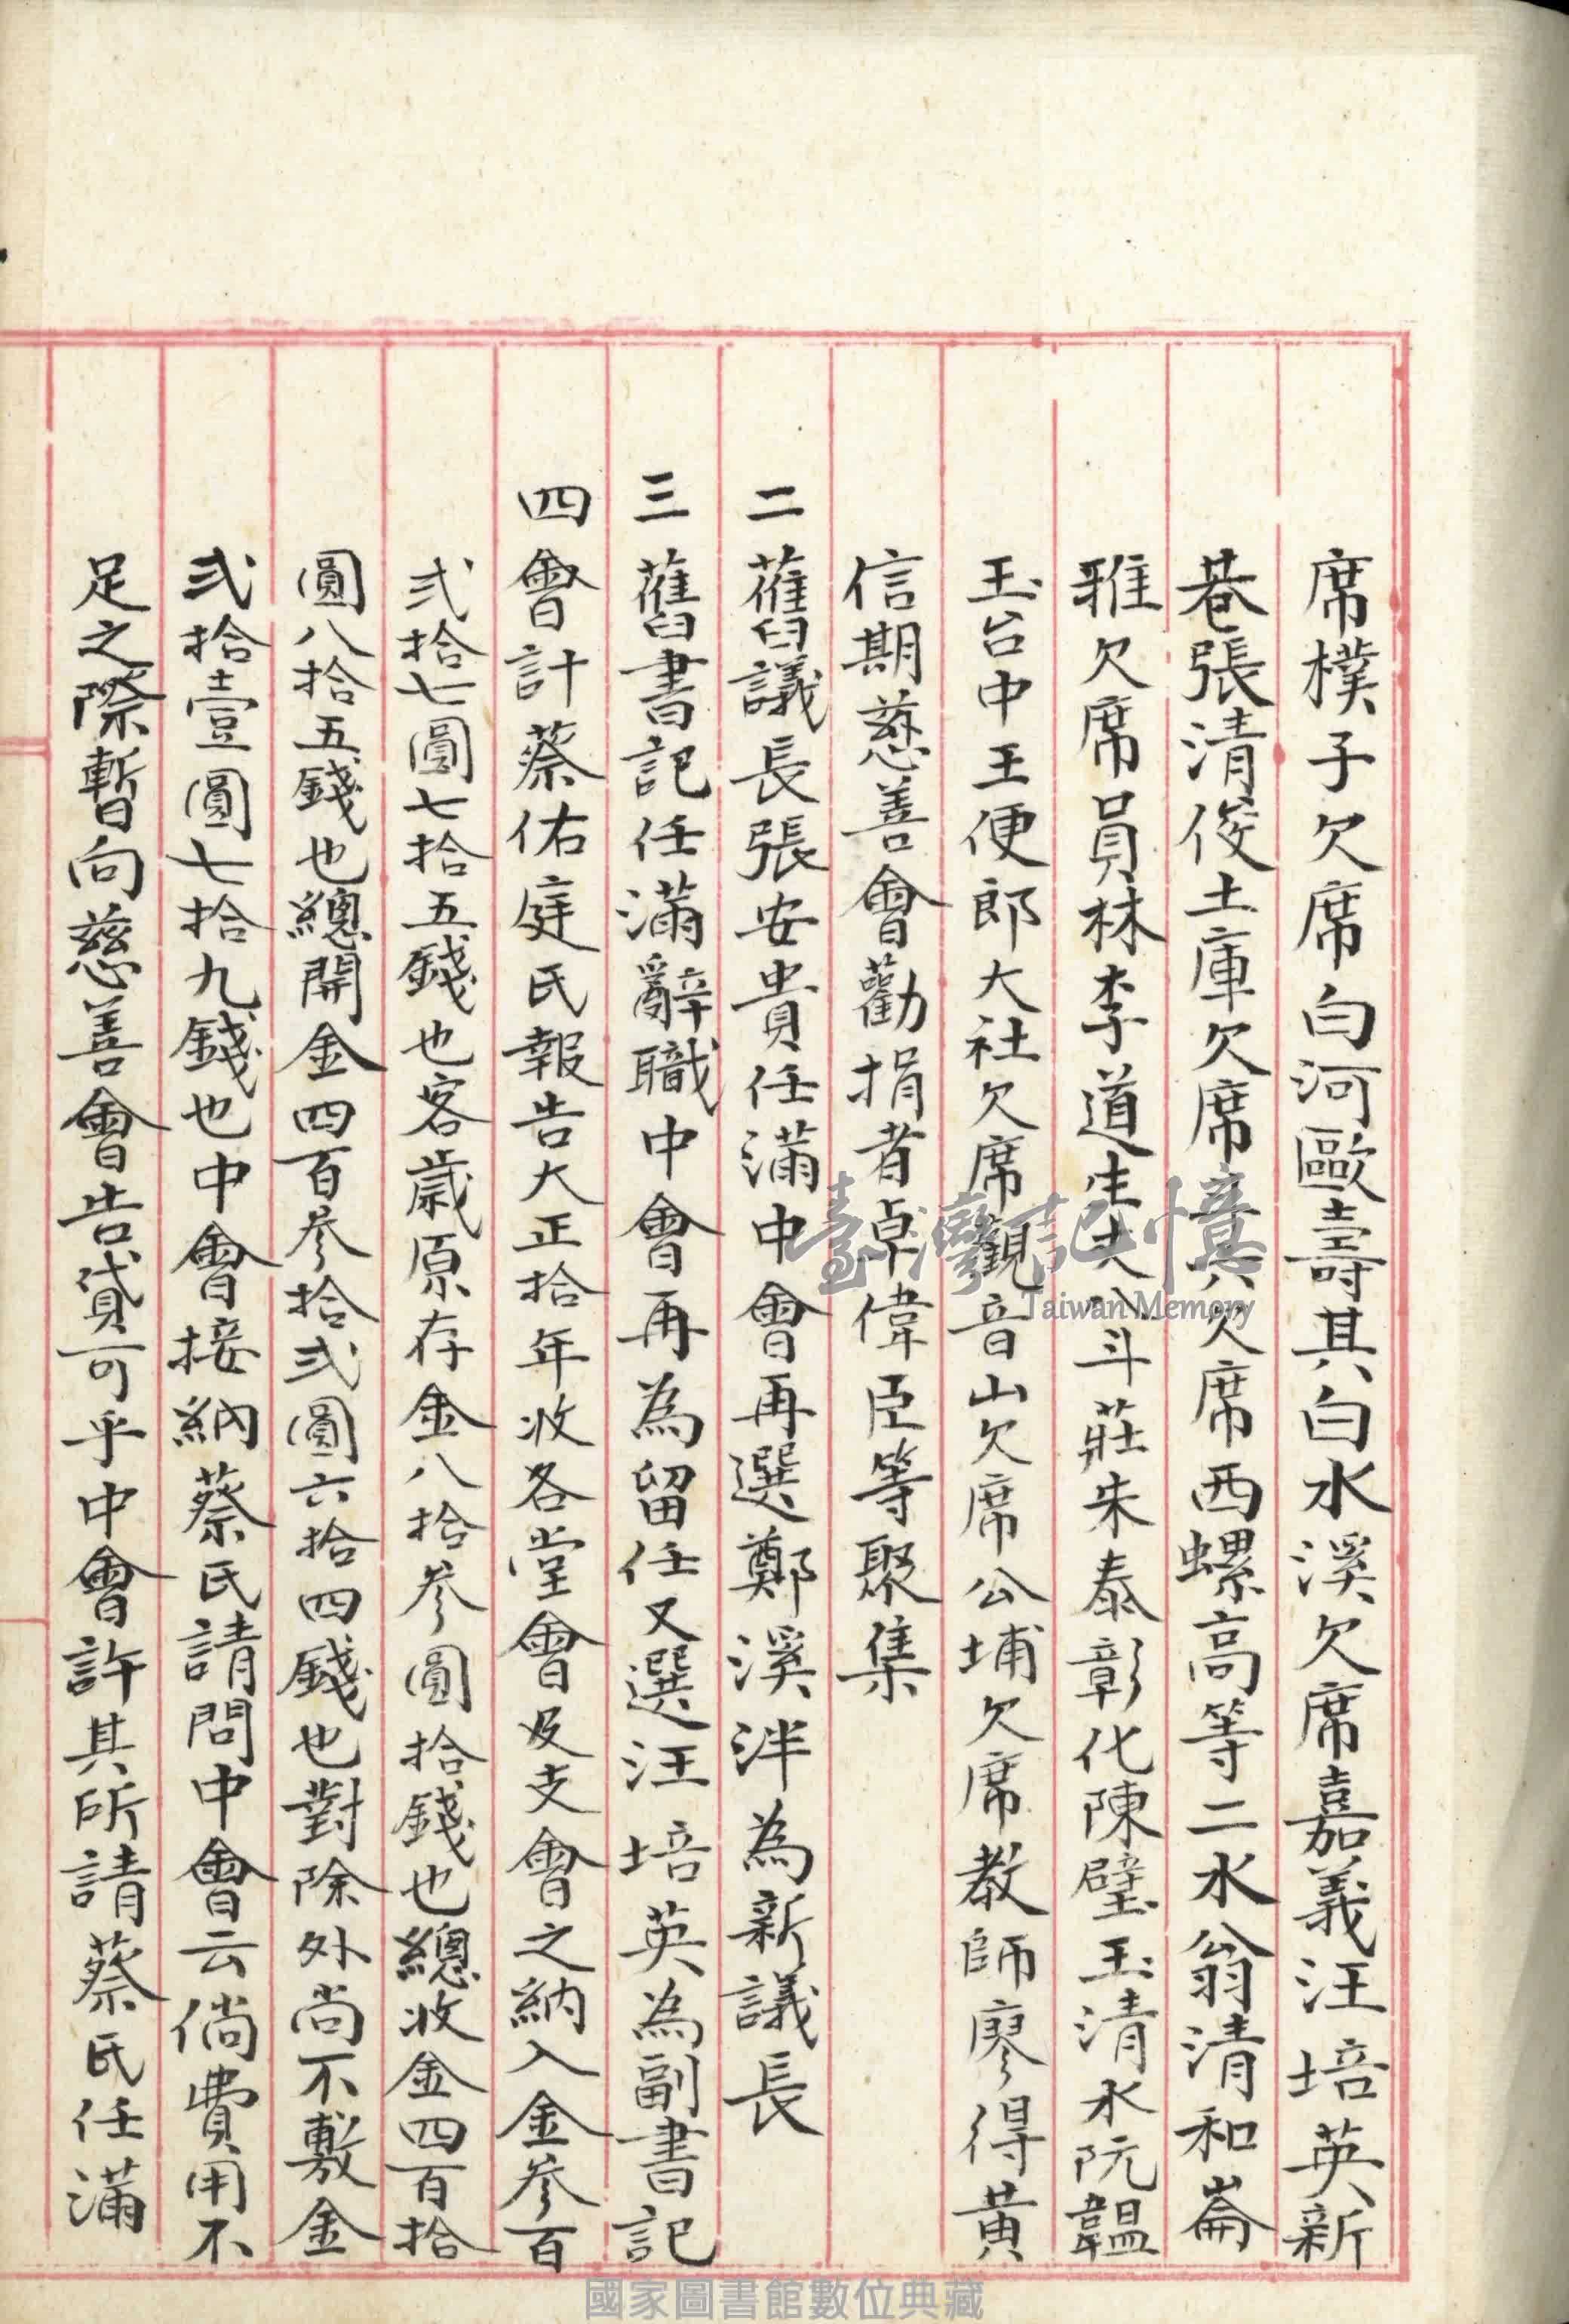 席樸子欠席白河歐壽其白水溪欠席嘉義汪培英新
巷張清俊土庫欠席 欠席西螺高等二水翁清和崙
雅欠席員林李道生夫 斗莊朱泰彰化陳璧玉清水阮韞
玉台中王便郎大社欠席觀音山欠席公埔欠席教師廖得黃
信期慈善會勸捐者卓偉臣等聚集
二舊議長張安貴任滿中會再選鄭溪泮為新議長
三舊書記任滿辭職中會再為留任又選汪培英為副書記
四會計蔡佑庭氏報告大正拾年收各堂會及支會之納入金參百
弍拾七圓七拾五錢也客歲原存金八拾參圓拾錢也總收金四百拾
圓八拾五錢也總開金四百參拾弍圓六拾四錢也對除外尚不敷金
弍拾壹圓七拾九錢也中會接納蔡氏請問中會云倘費用不
足之際暫向慈善會告貸可乎中會許其所請蔡氏任滿
臺灣記憶
Taiwan Memory
國家圖書館數位典藏